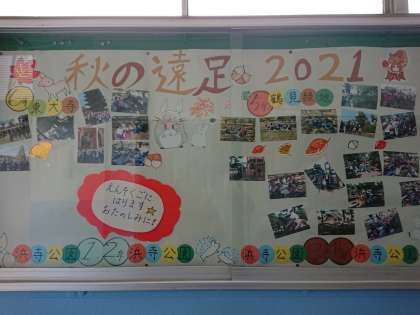 秋の遠足 2021
東大寺
鶴見緑地
えんそくごに
はります
おたのしみに!
浜寺公園
12年
浜寺公園
浜寺公園
浜寺公園